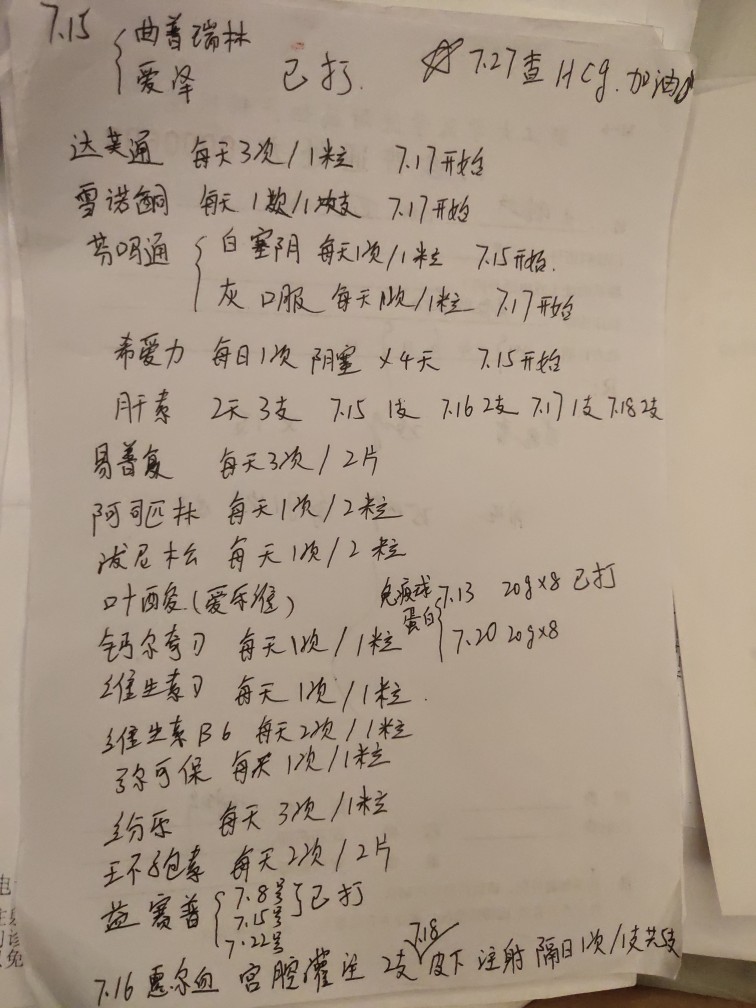 7.15 { 曲普瑞林
爱泽 已打.
☆ 7.27查 HCg. 加油
达芙通 每天3次/1粒 7.17开始
雪诺酮 每天1次/1支 7.17开始
芬吗通 { 白 塞阴 每天1次/1粒 7.15开始.
灰 口服 每天1次/1粒 7.17开始
希爱力 每日1次 阴塞 ×4天 7.15开始
肝素 2天3支 7.15 1支 7.16 2支 7.17 1支 7.18 2支
易善复 每天3次/2片
阿司匹林 每天1次/2粒
泼尼松 每天1次/2粒
叶酸(爱乐维)
免疫球蛋白 { 7.13 20g×8 已打
7.20 20g×8
钙尔奇D 每天1次/1粒
维生素D 每天1次/1粒.
维生素B6 每天2次/1粒
弥可保 每天1次/1粒
纷乐 每天3次/1粒
环孢素 每天2次/2片
益赛普 { 7.8号 } 已打
7.15号
7.22号
7.18
7.16 惠尔血 宫腔灌注 2支 皮下注射 隔日1次/1支共5支